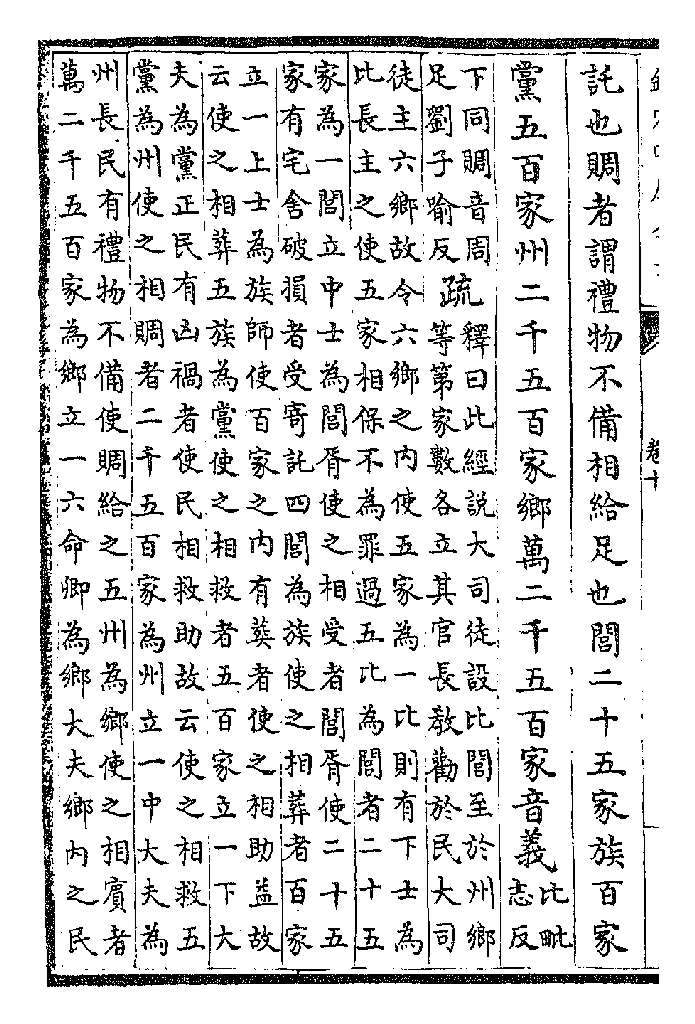 卷十
託也賙者謂禮物不備相給足也閭二十五家族百家
黨五百家州二千五百家鄉萬二千五百家音義比毗
志反
下同賙音周
足劉子喻反
疏
釋曰此經說大司徒設比閭至於州鄉
等第家數各立其官長教勸於民大司
徒主六鄉故令六鄉之内使五家為一比則有下士為
比長主之使五家相保不為罪過五比為閭者二十五
家為一閭立中士為閭胥使之相受者閭胥使二十五
家有宅舍破損者受寄託四閭為族使之相葬者百家
立一上士為族師使百家之内有葬者使之相助益故
云使之相葬五族為黨使之相救者五百家立一下大
夫為黨正民有凶禍者使民相救助故云使之相救五
黨為州使之相賙者二千五百家為州立一中大夫為
州長民有禮物不備使賙給之五州為鄉使之相賓者
萬二千五百家為鄉立一六命卿為鄉大夫鄉内之民